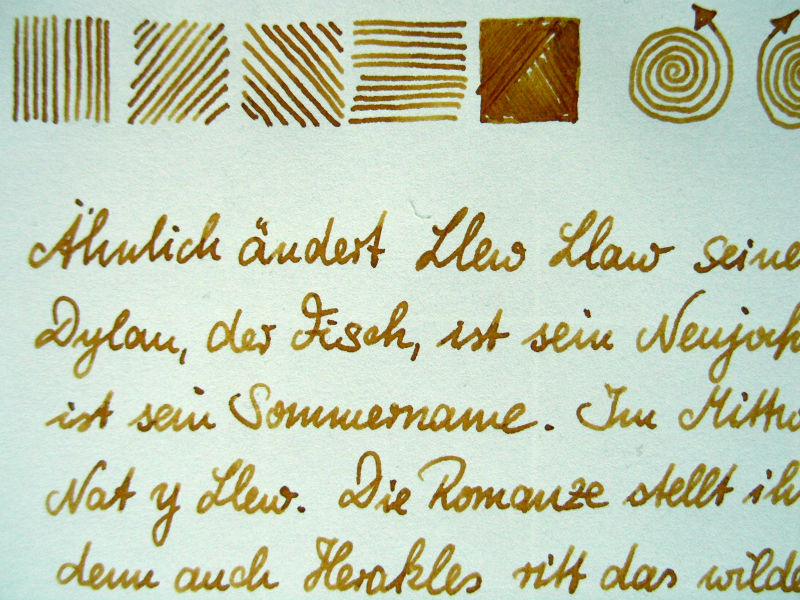 Ähnlich ändert Llew Llaw seine
Dylan, der Fisch, ist sein Neujah
ist sein Sommername. Im Mittw
Nat y Llew. Die Romanze stellt ih
denn auch Herakles ritt das wilde